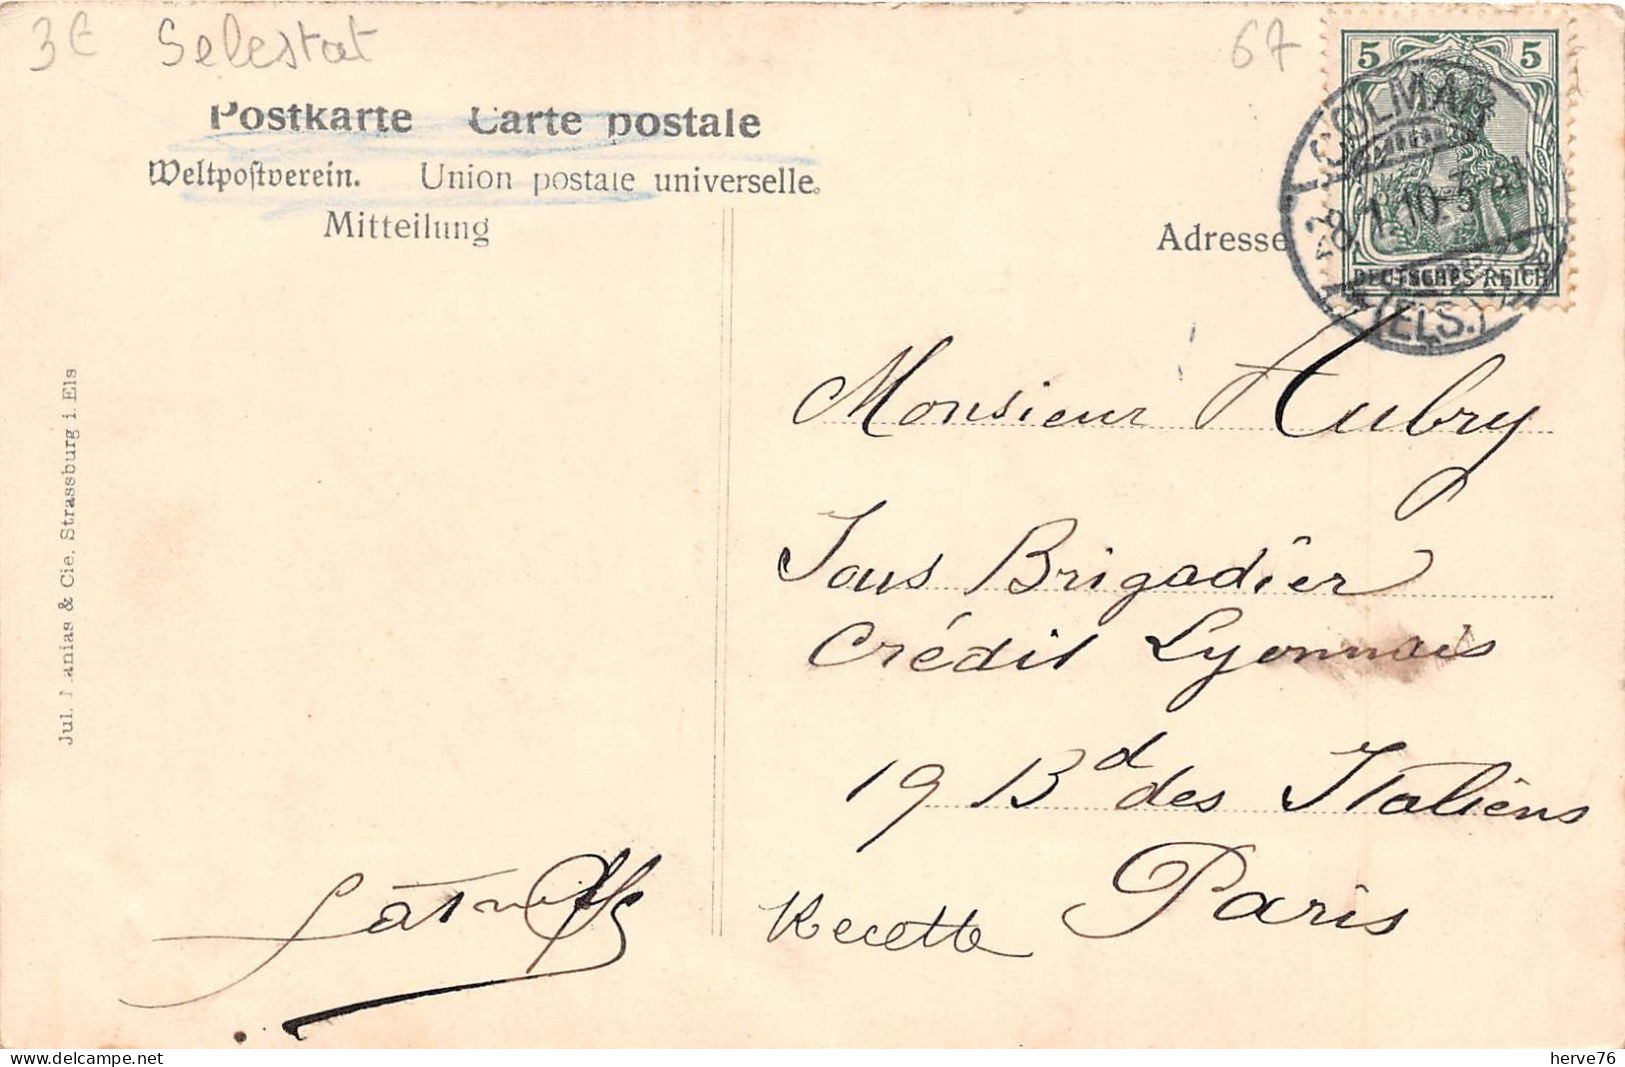 3€ Selestat
67
Postkarte Carte postale
Weltpostverein. Union postale universelle.
Mitteilung
Adresse
5 5
DEUTSCHES REICH
COLMAR
28.1.10.3
(ELS.)
Monsieur Aubry
Sous Brigadier
Crédit Lyonnais
19 Bd des Italiens
Paris
Recette
& Cie. Strassburg i. Els
Jul.
delcampe.net
herve76